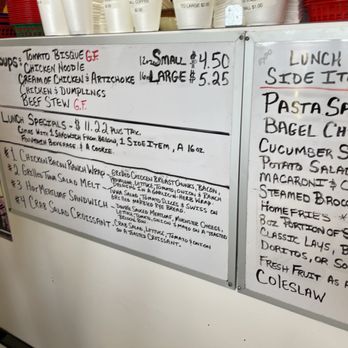 OUPS:
TOMATO BISQUE G.F.
CHICKEN NOODLE
CREAM OF CHICKEN & ARTICHOKE
CHICKEN & DUMPLINGS
BEEF STEW G.F.
12oz SMALL $4.50
16oz LARGE $5.25
LUNCH SPECIALS - $11.22 PLUS TAX.
COMES WITH 1 SANDWICH FROM BELOW, 1 SIDE ITEM, A 16oz
FOUNTAIN BEVERAGE & A COOKIE.
#1 CHICKEN BACON RANCH WRAP - GRILLED CHICKEN BREAST CHUNKS, BACON,
LETTUCE, TOMATO, ONION & RANCH
DRESSING IN A GARLIC-HERB WRAP.
#2 GRILLED TUNA SALAD MELT - TUNA SALAD, TOMATO SLICES & SWISS ON
GRILLED MARBLED RYE BREAD.
#3 HOT MEATLOAF SANDWICH - SAUCE, MEATLOAF, MUENSTER CHEESE,
LETTUCE, TOMATO, ONION & MAYO ON A TOASTED
#4 CRAB SALAD CROISSANT - CRAB SALAD, LETTUCE, TOMATO & ONION
ON A TOASTED CROISSANT.
LUNCH
SIDE ITE
PASTA SA
BAGEL CH
CUCUMBER S
POTATO SALAD
MACARONI & C
STEAMED BROCC
HOMEFRIES
8oz PORTION OF S
CLASSIC LAYS, B
DORITOS, OR SO
FRESH FRUIT AS A
COLESLAW